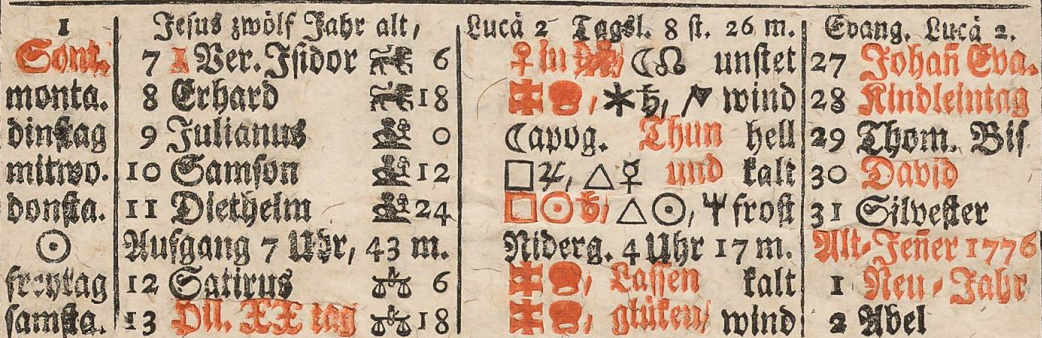 1 Jesus zwölf Jahr alt, Lucä 2 Tagsl. 8 st. 26 m. Evang. Lucä 2.
Sont. 7 Ver. Isidor 6 ♀ in ☾☊ unstet 27 Johañ Eva.
monta. 8 Erhard 18 ⚹♄, wind 28 Kindleintag
dinstag 9 Julianus 0 ☾apog. Thun hell 29 Thom. Bis
mitwo. 10 Samson 12 □♃, △☿ und kalt 30 David
donsta. 11 Diethelm 24 □☉♄, △☉, frost 31 Silvester
☉ Aufgang 7 Uhr, 43 m. Niderg. 4 Uhr 17 m. Alt-Jeñer 1776
freytag 12 Satirus 6 Lassen kalt 1 Neu-Jahr
samsta. 13 XX tag 18 glüken wind 2 Abel